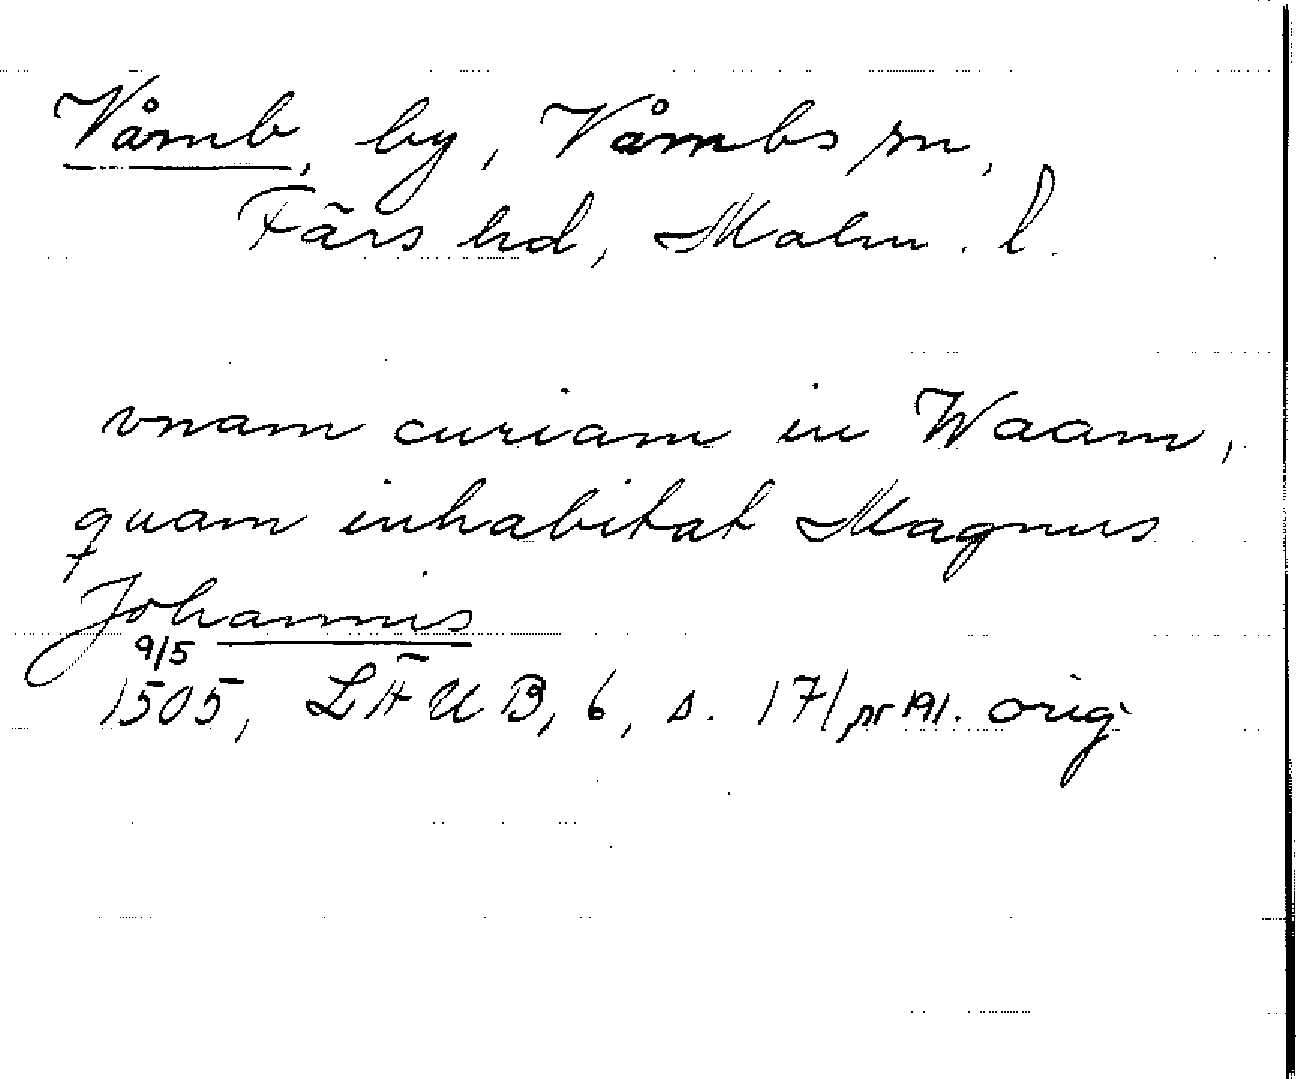 Våmb, by, Våmbs sn,
Färs hd, Malm. l.
vnam curiam in Waam,
quam inhabitat Magnus
Johannis
9/5
1505, LÄUB, 6, s. 171 nr 191. orig